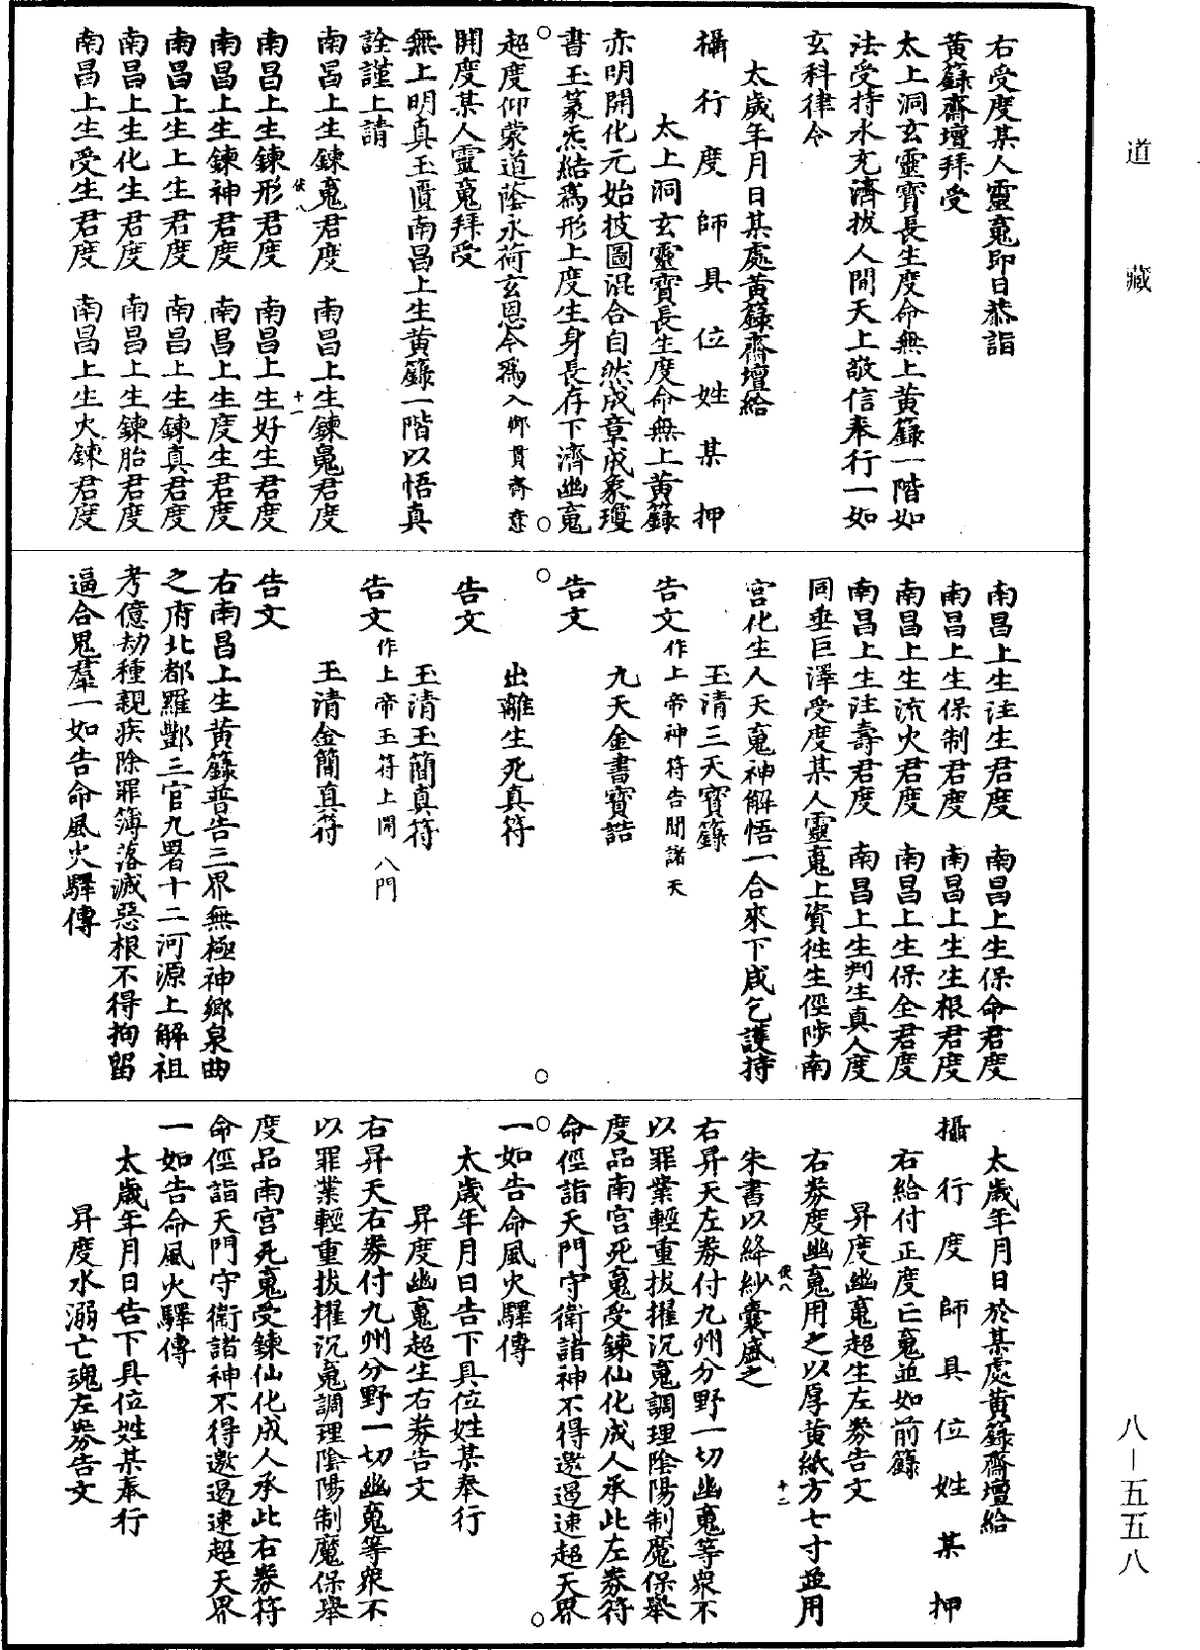 道藏
右受度某人靈䰟即日恭詣
黃籙齋壇拜受
太上洞玄靈寶長生度命無上黃籙一階如
法受持水充濟拔人間天上敬信奉行一如
玄科律令
太歲年月日某處黃籙齋壇給
攝行度師具位姓某押
太上洞玄靈寶長生度命無上黃籙
赤明開化元始披圖混合自然成章成象瓊
書玉篆炁結為形上度生身長存下濟幽䰟
超度仰蒙道蔭永荷玄恩今為入鄉貫齋意
開度某人靈䰟拜受
無上明真玉匱南昌上生黃籙一階以悟真
詮謹上請
南昌上生鍊䰟君度 南昌上生鍊魄君度
南昌上生鍊形君度 南昌上生好生君度
南昌上生鍊神君度 南昌上生度生君度
南昌上生上生君度 南昌上生鍊真君度
南昌上生化生君度 南昌上生鍊胎君度
南昌上生受生君度 南昌上生火鍊君度
南昌上生注生君度 南昌上生保命君度
南昌上生保制君度 南昌上生生根君度
南昌上生流火君度 南昌上生保全君度
南昌上生注壽君度 南昌上生判生真人度
同垂巨澤受度某人靈䰟上資徃生徑陟南
宮化生人天䰟神解悟一合來下咸乞護持
玉清三天寶籙
告文作上帝神符告聞諸天
九天金書寶誥
告文
出離生死真符
告文
玉清玉簡真符
告文作上帝玉符上開八門
玉清金簡真符
告文
右南昌上生黃籙普告三界無極神鄉泉曲
之府北都羅酆三官九署十二河源上解祖
考億劫種親疾除罪簿落滅惡根不得拘留
逼合鬼羣一如告命風火驛傳
太歲年月日於某處黃籙齋壇給
攝行度師具位姓某押
右給付正度亡䰟並如前籙
昇度幽䰟超生左券告文
右券度幽䰟用之以厚黃紙方七寸並用
朱書以絳紗囊盛之
右昇天左券付九州分野一切幽䰟等眾不
以罪業輕重拔擢沉䰟調理陰陽制魔保舉
度品南宮死䰟受鍊仙化成人承此左券符
命徑詣天門守衛諸神不得邀遏速超天界
一如告命風火驛傳
太歲年月日告下具位姓某奉行
昇度幽䰟超生右券告文
右昇天右券付九州分野一切幽䰟等眾不
以罪業輕重拔擢沉䰟調理陰陽制魔保舉
度品南宮死䰟受鍊仙化成人承此右券符
命徑詣天門守衛諸神不得邀遏速超天界
一如告命風火驛傳
太歲年月日告下具位姓某奉行
昇度水溺亡魂左券告文
八—五五八